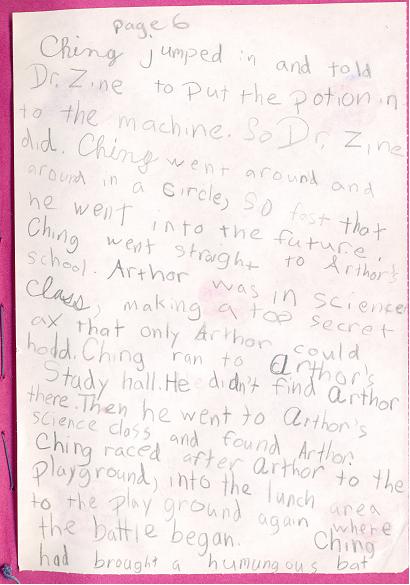 page 6
Ching jumped in and told
Dr. Zine to put the potion in
to the machine. So Dr. Zine
did. Ching went around and
around in a circle, so fast that
he went into the future.
Ching went straght to Arthor's
school. Arthor was in science
class, making a too secret
ax that only Arthor could
hodd. Ching ran to arthor's
Study hall. He didn't find arthor
there. Then he went to arthor's
science class and found Arthor.
Ching raced after arthor to the
playground, into the lunch area
to the play ground again where
the battle began. Ching
had brought a humungous bat